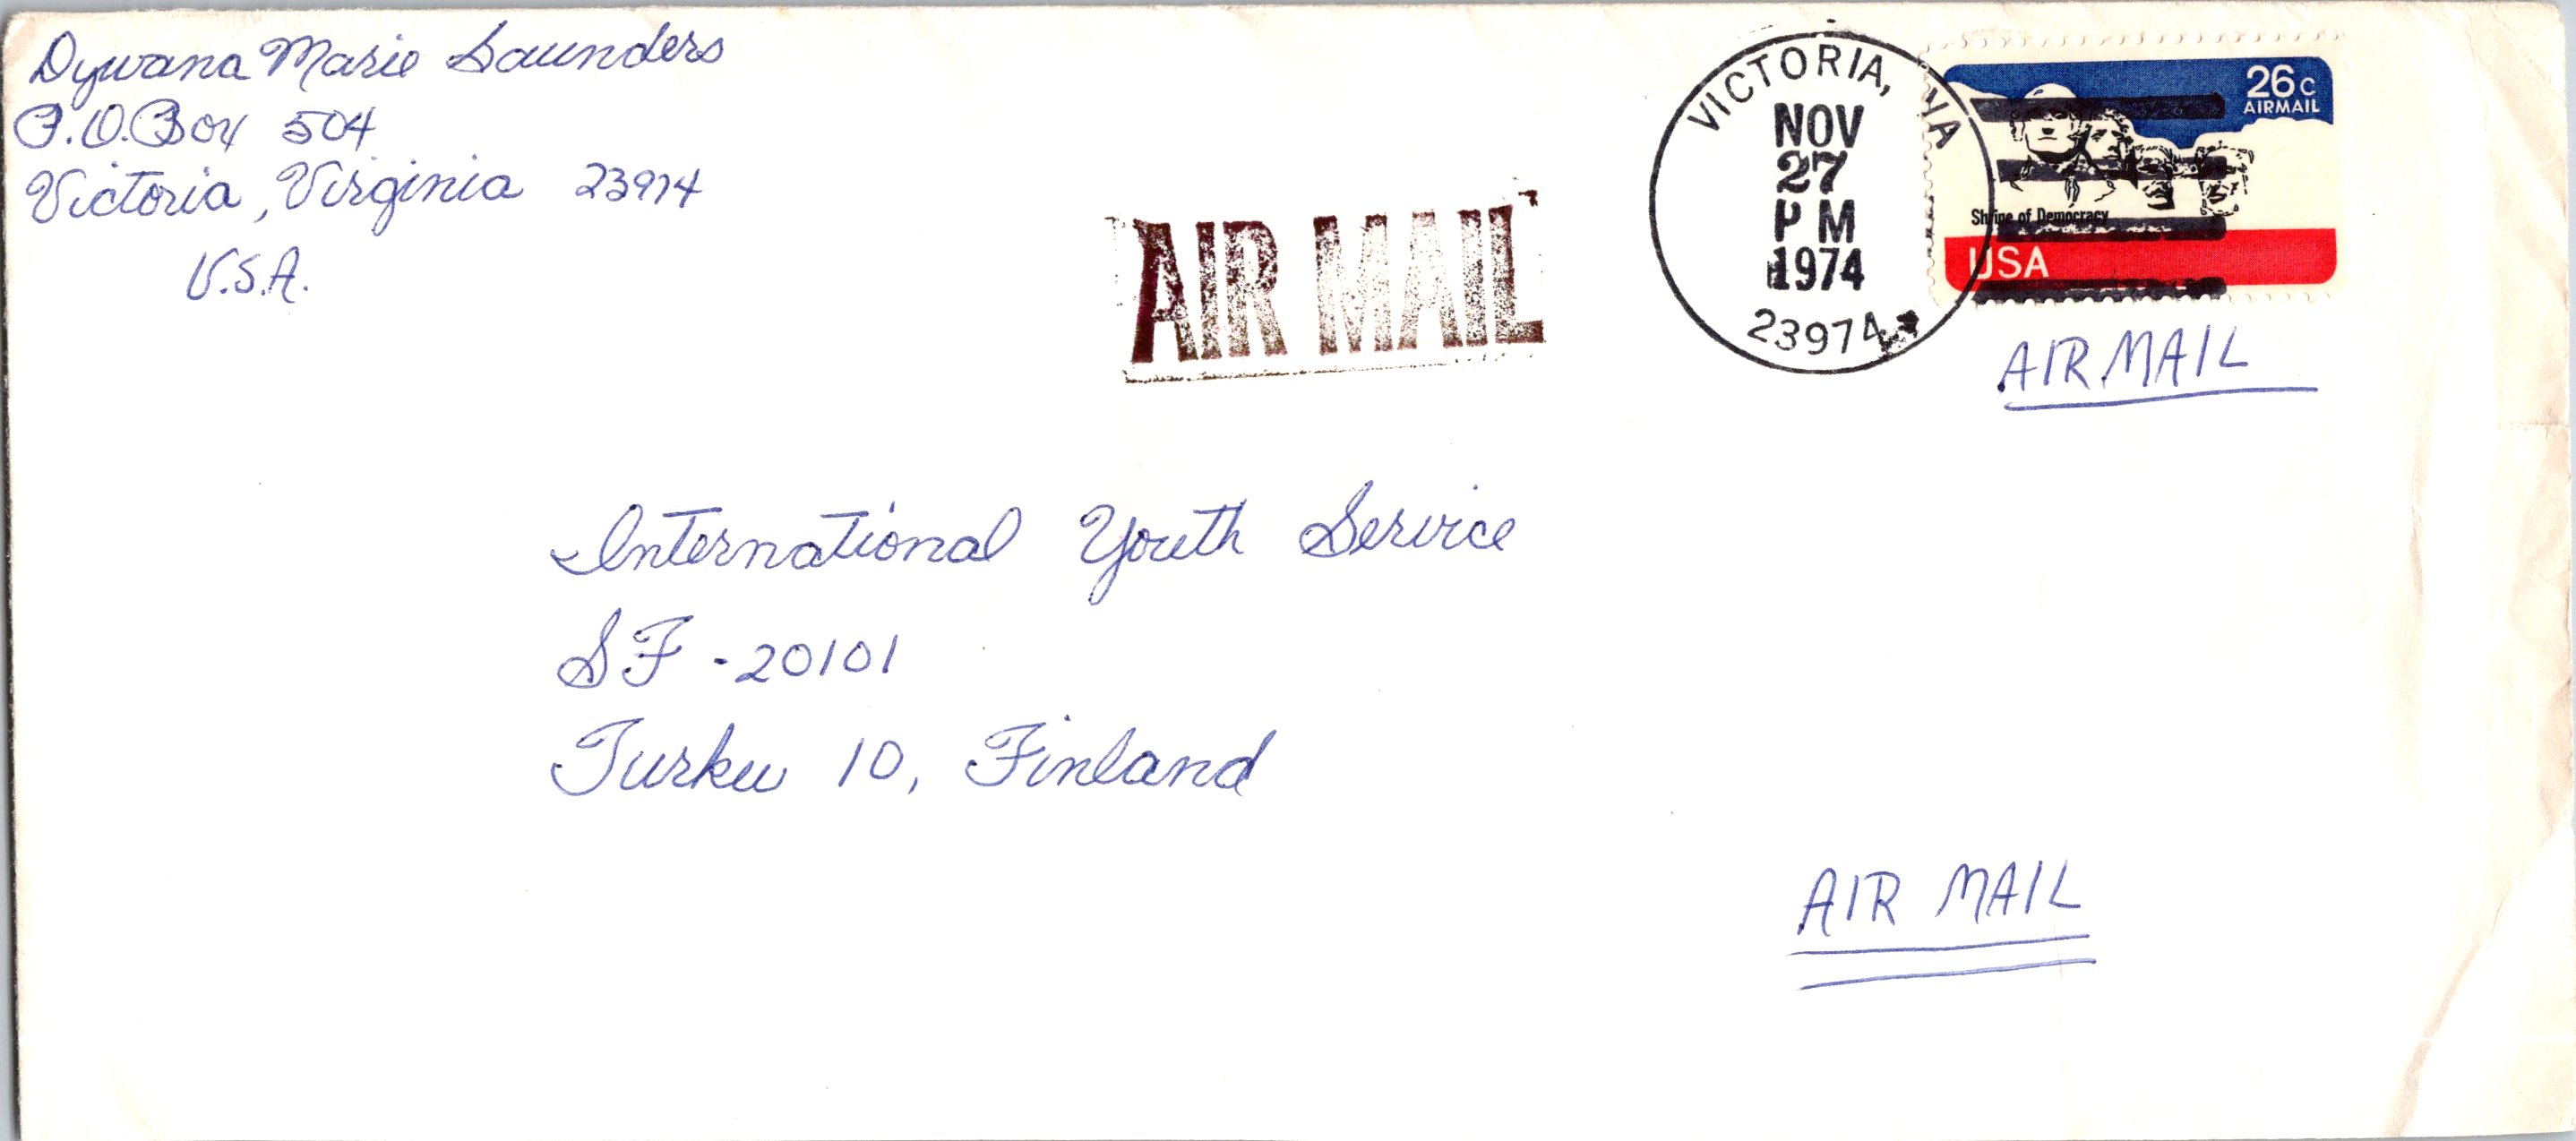 Dywana Marie Saunders
P.O. Box 504
Victoria, Virginia 23974
U.S.A.
AIR MAIL
VICTORIA, VA
NOV
27
PM
1974
23974
26c
AIRMAIL
Shrine of Democracy
USA
AIR MAIL
International Youth Service
SF - 20101
Turku 10, Finland
AIR MAIL